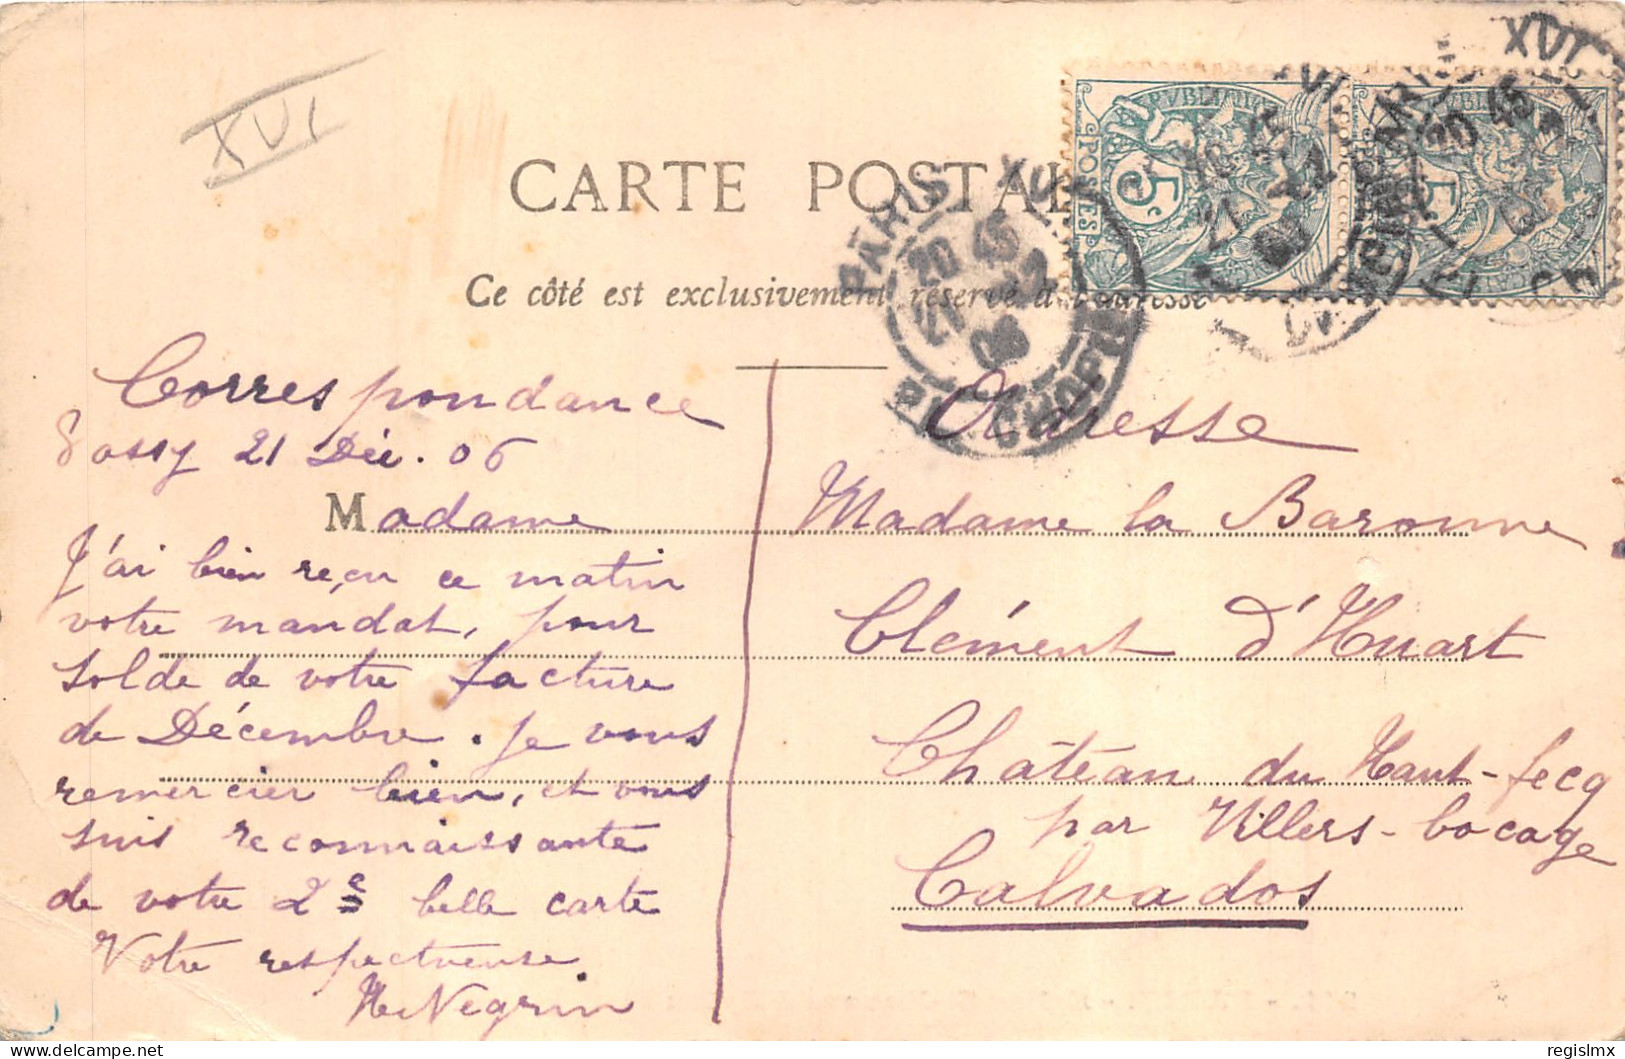 XVI
CARTE POSTALE
Ce côté est exclusivement réservé à l'adresse
PARIS XVI
20 45
21
06
5c
POSTES
Correspondance
Passy 21 Déc. 06
Madame
J'ai bien reçu ce matin
votre mandat, pour
solde de votre facture
de Décembre. Je vous
remercier bien, et vous
suis reconnaissante
de votre 2e belle carte
Votre respectueuse
Negrin
Adresse
Madame la Baronne
Clément d'Huart
Château du Haut-fecq
par Villers-bocage
Calvados
regislmx